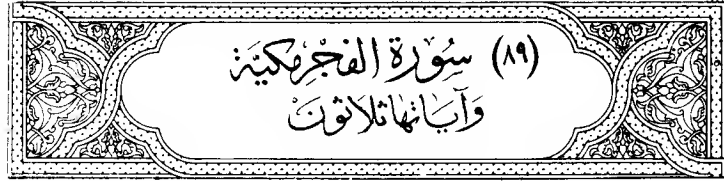 (٨٩) سُورَة الفَجْرِ مَكيَّة
وَآيَاتهَا ثلاثونَ